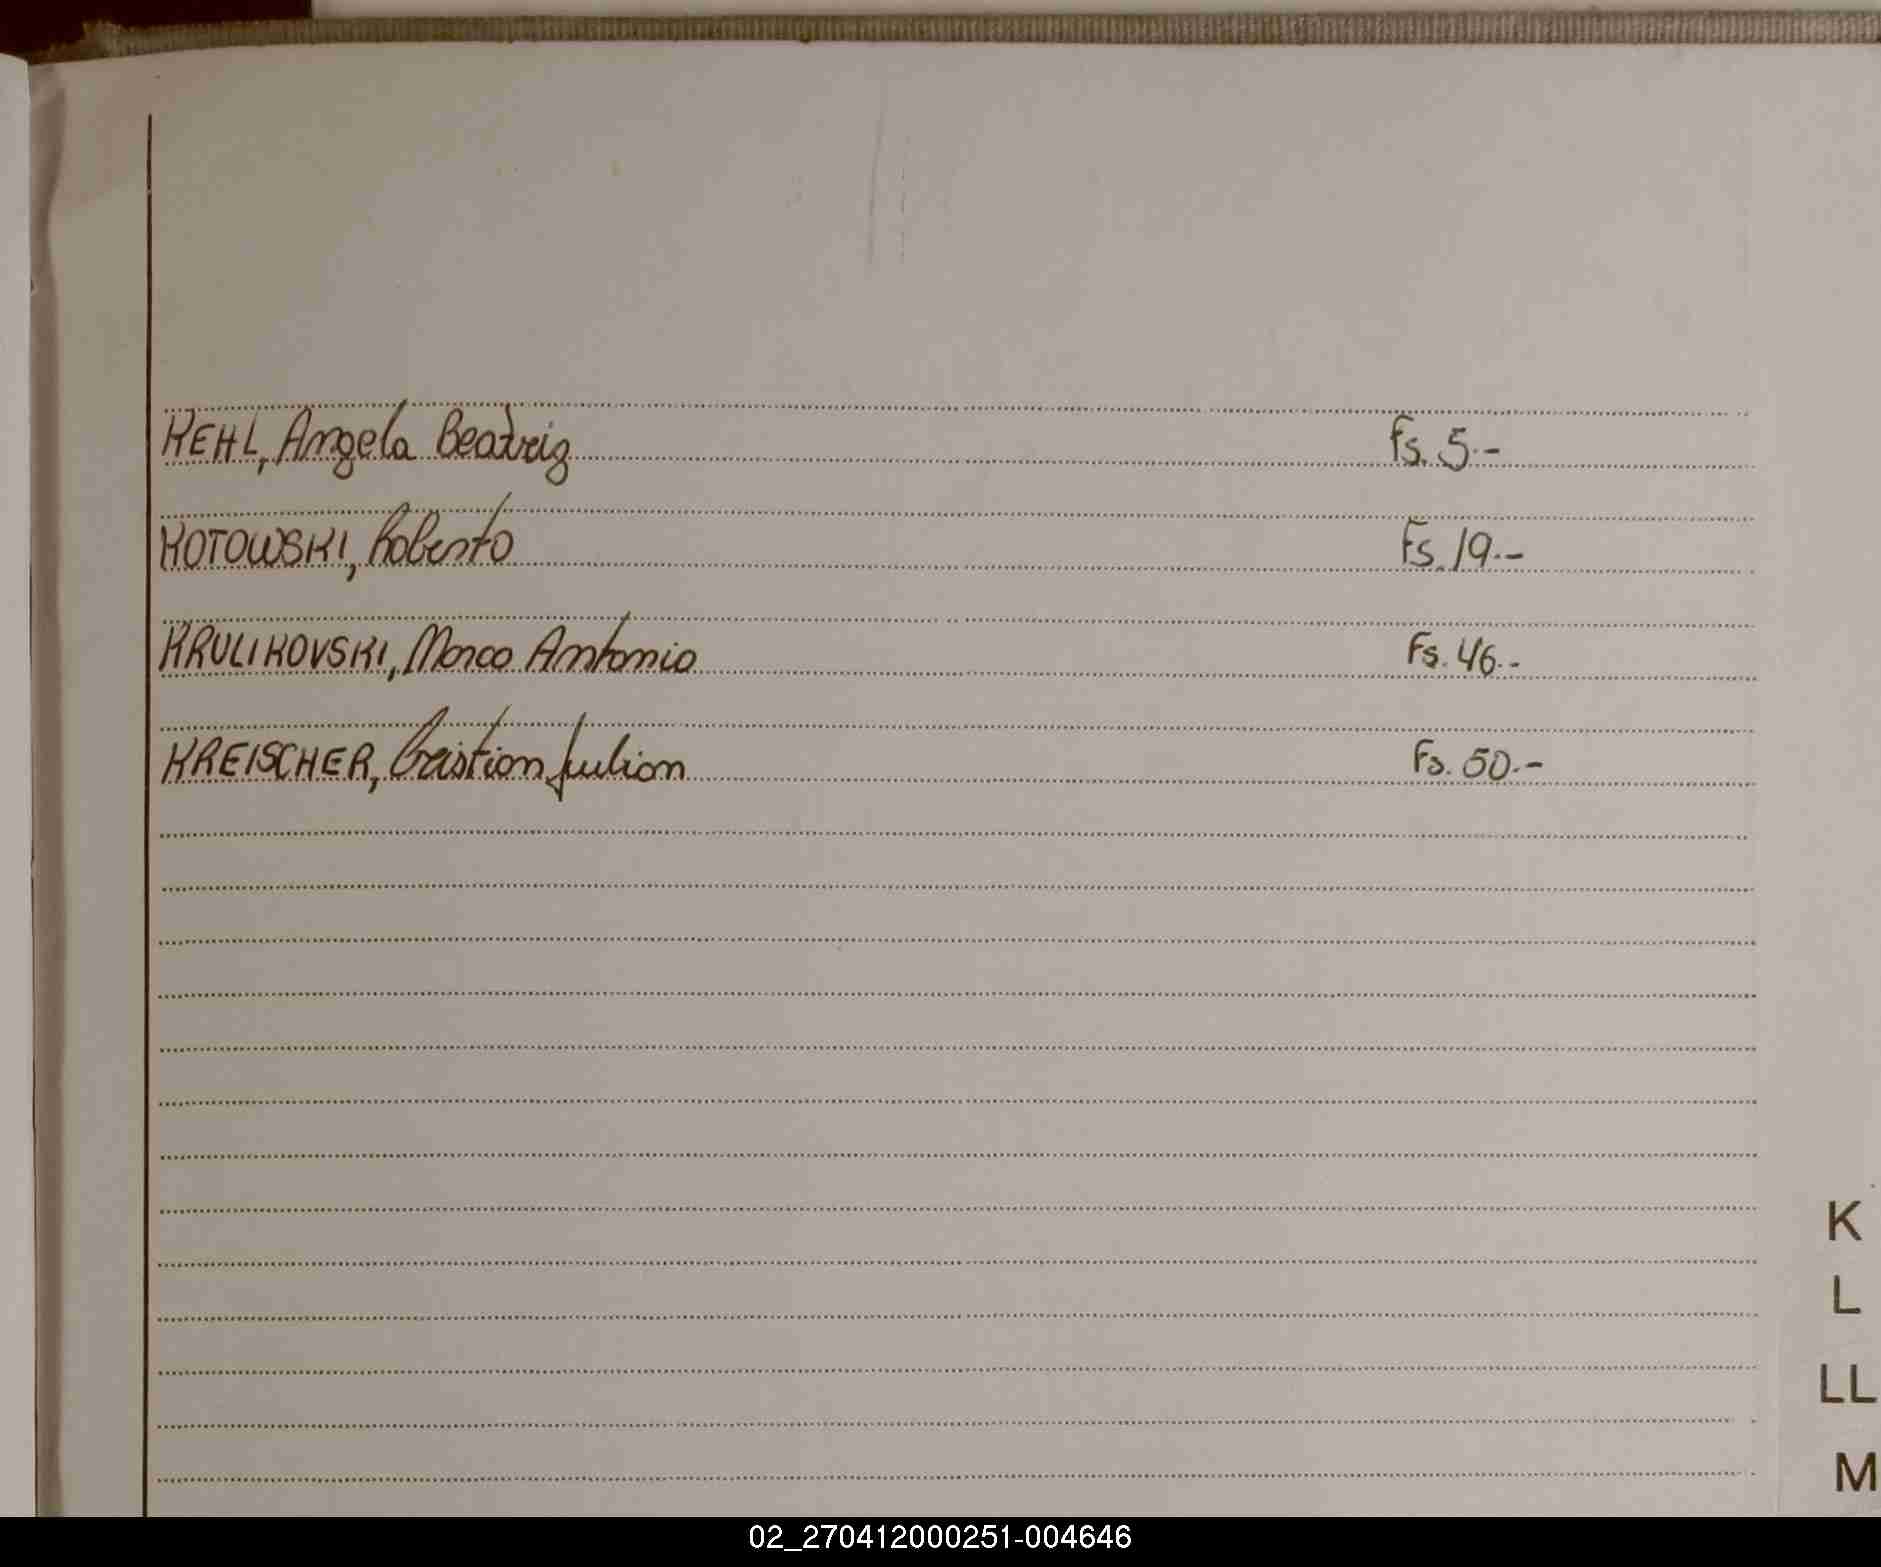 KEHL, Angela Beatriz Fs. 5.-
KOTOWSKI, Roberto Fs. 19.-
KRULIKOVSKI, Marco Antonio Fs. 46.-
KREISCHER, Cristian Julian Fs. 50.-
K
L
LL
M
02_270412000251-004646